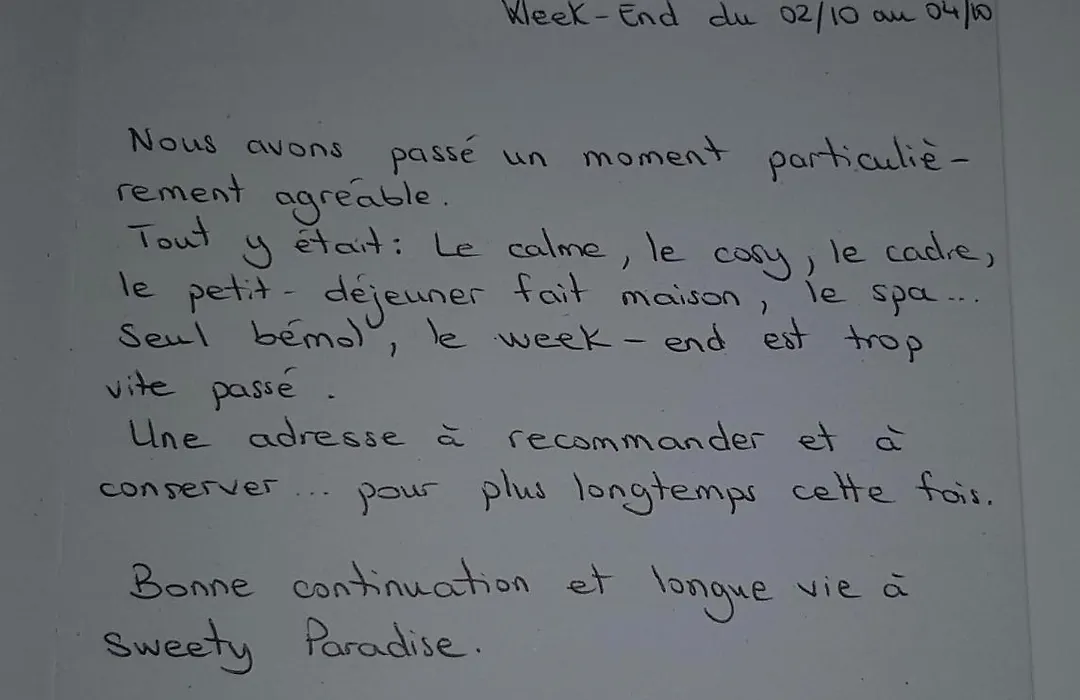 Week-End du 02/10 au 04/10
Nous avons passé un moment particuliè-
rement agréable.
Tout y était : Le calme, le cosy, le cadre,
le petit-déjeuner fait maison, le spa...
Seul bémol, le week-end est trop
vite passé.
Une adresse à recommander et à
conserver... pour plus longtemps cette fois.
Bonne continuation et longue vie à
Sweety Paradise.